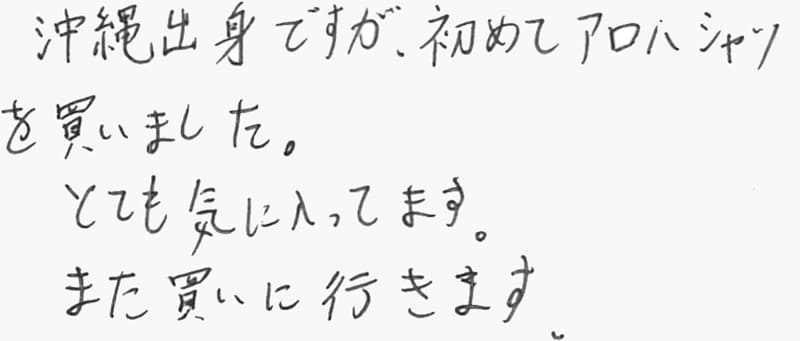 沖縄出身ですが、初めてアロハシャツ
を買いました。
とても気に入ってます。
また買いに行きます。